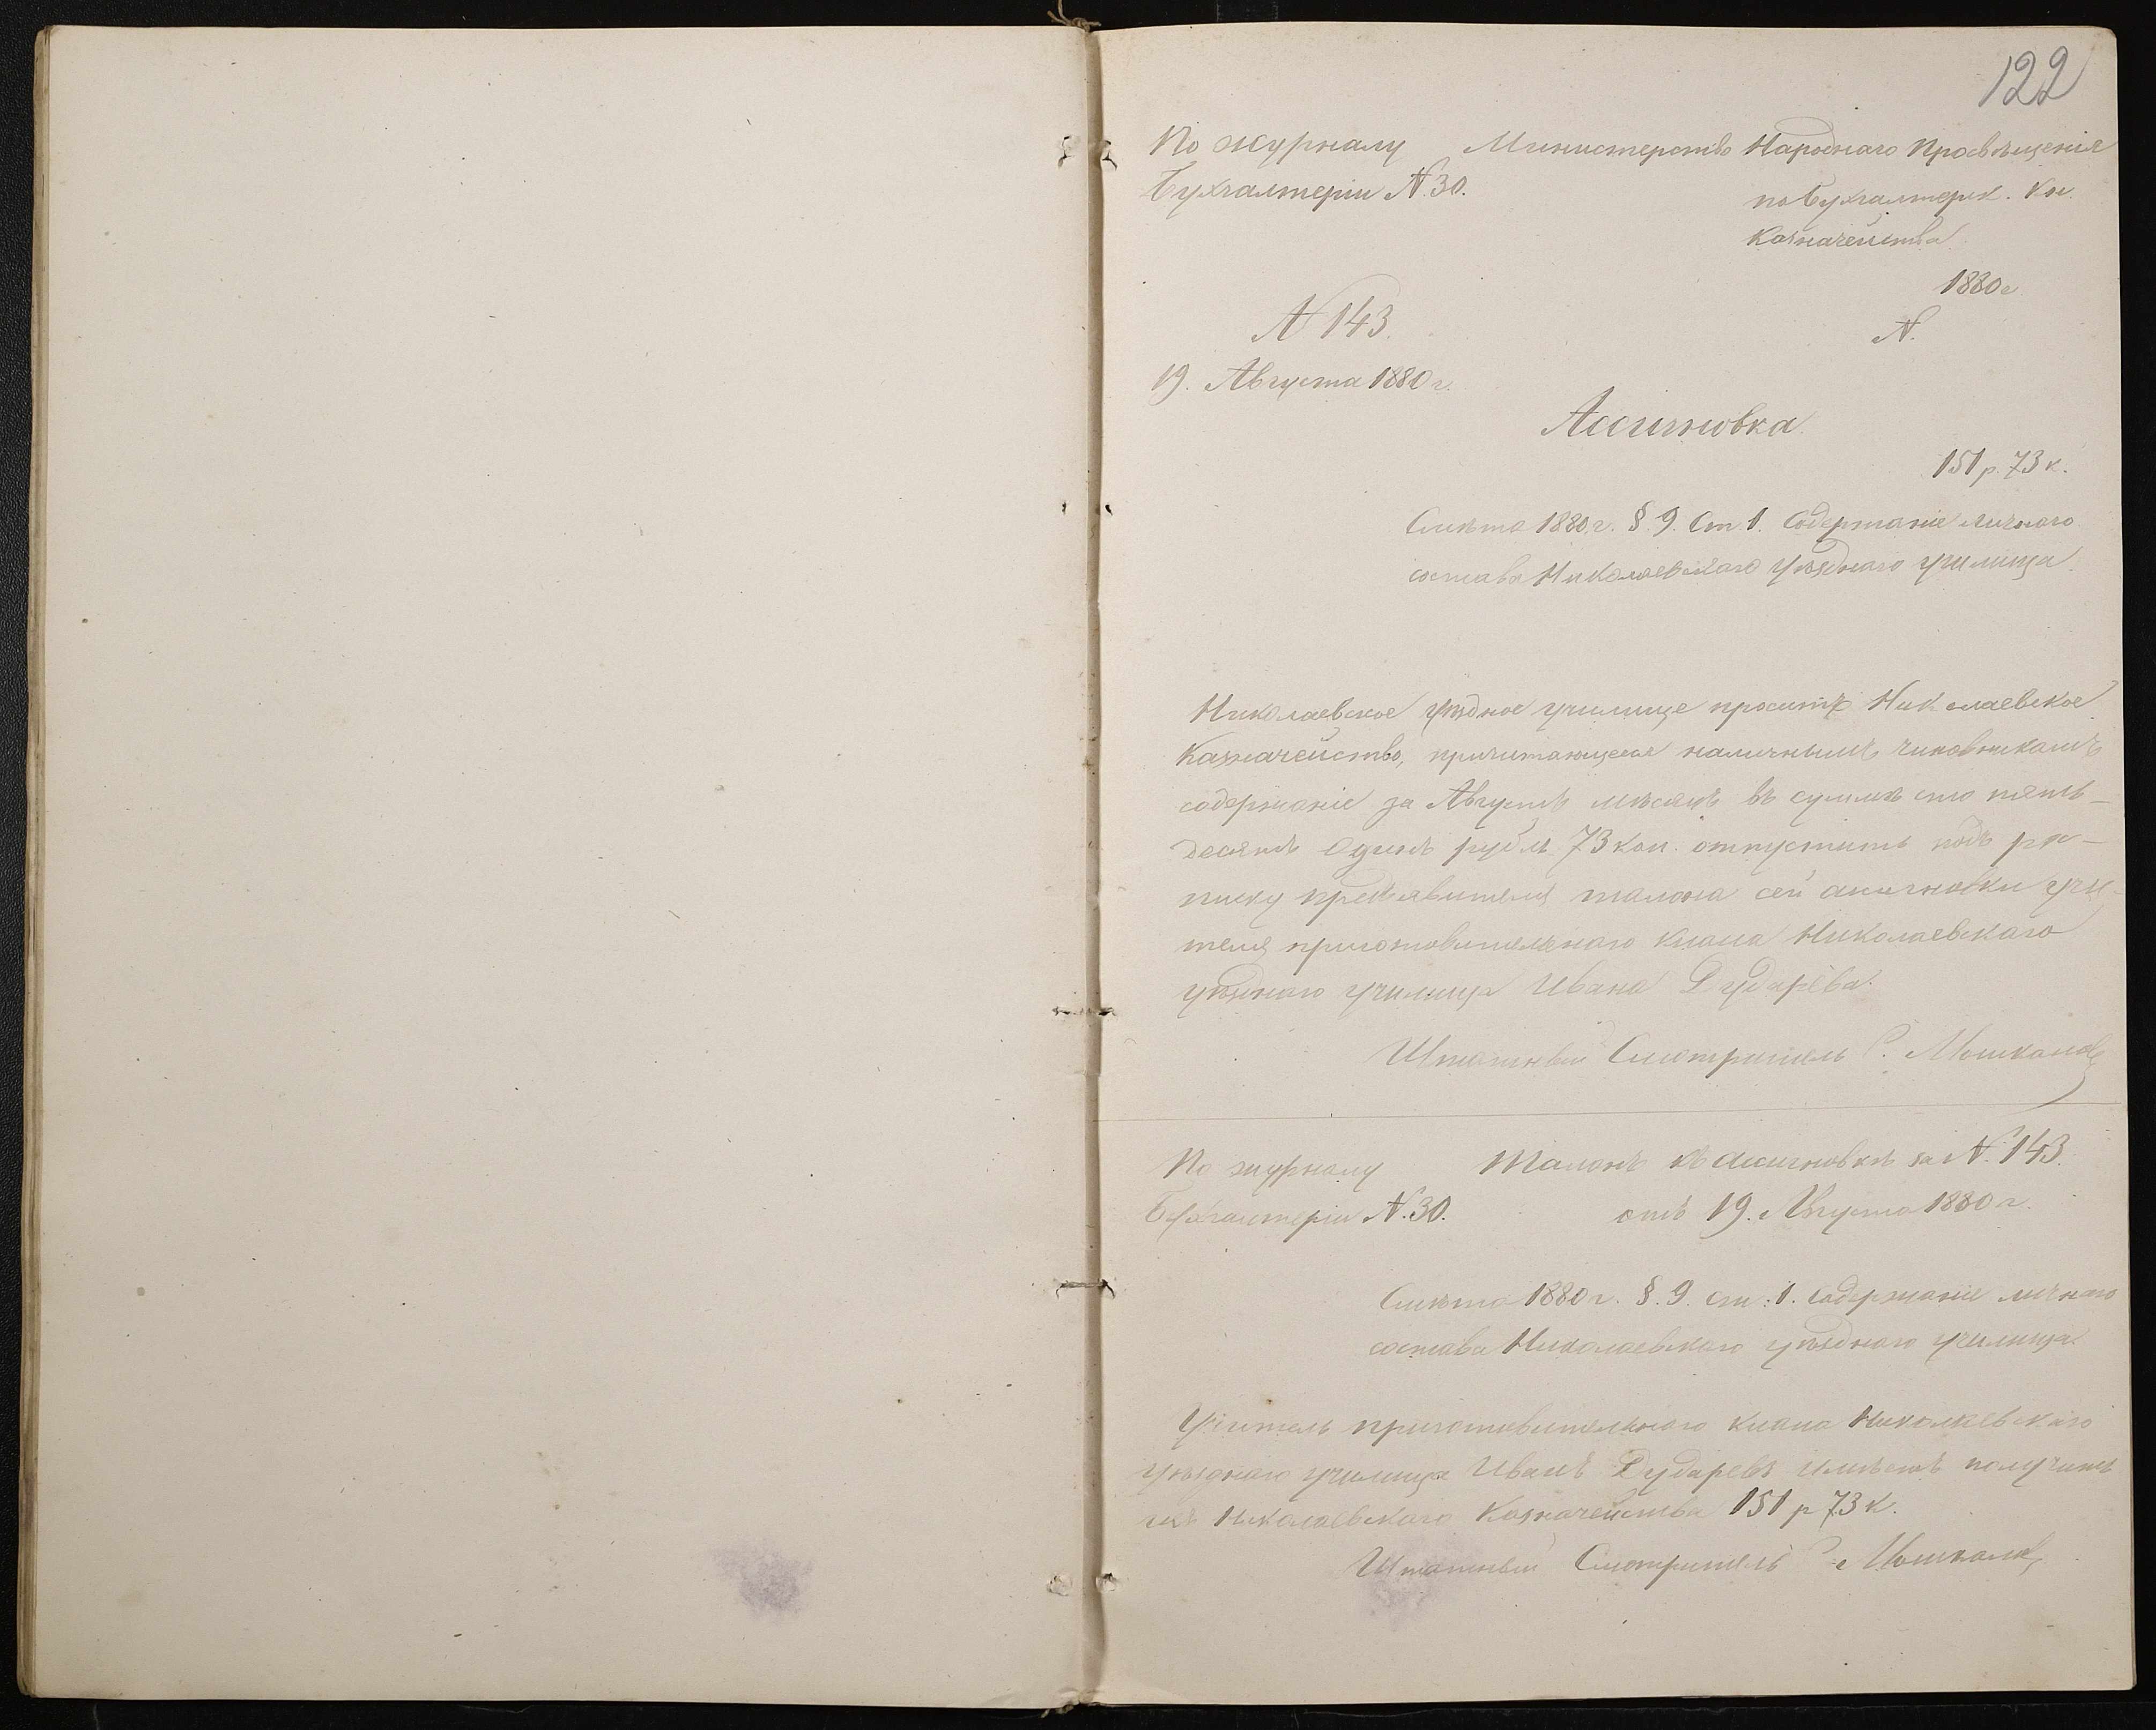 122
По журналу
Бухгалтеріи N. 30.
Министерство Народнаго Просвѣщенія
по Бухгалтерск. Кн.
Казначейства
1880 г
N.
N 143.
19. Августа 1880 г.
Ассигновка.
151 р. 73 к.
Смѣта 1880 г. §. 9. Ст 1. Содержаніе личнаго
состава Николаевскаго уѣзднаго училища.
Николаевское уѣздное училище проситъ Николаевское
Казначейство, причитающееся наличнымъ чиновникамъ
содержаніе за Августъ мѣсяцъ въ суммѣ сто пять-
десятъ одинъ рубль 73 коп. отпустить подъ рос-
писку предъявителя талона сей ассигновки учи-
теля приготовительнаго класса Николаевскаго
уѣзднаго училища Ивана Дударева.
Штатный Смотритель
По журналу
Бухгалтеріи N. 30.
Талонъ къ ассигновкѣ за N. 143.
отъ 19. Августа 1880 г.
Смѣта 1880 г. §. 9. ст. 1. содержаніе личнаго
состава Николаевскаго уѣзднаго училища.
Учитель приготовительнаго класса Николаевскаго
уѣзднаго училища Иванъ Дударевъ имѣетъ получить
изъ Николаевскаго Казначейства 151 р 73 к.
Штатный Смотритель